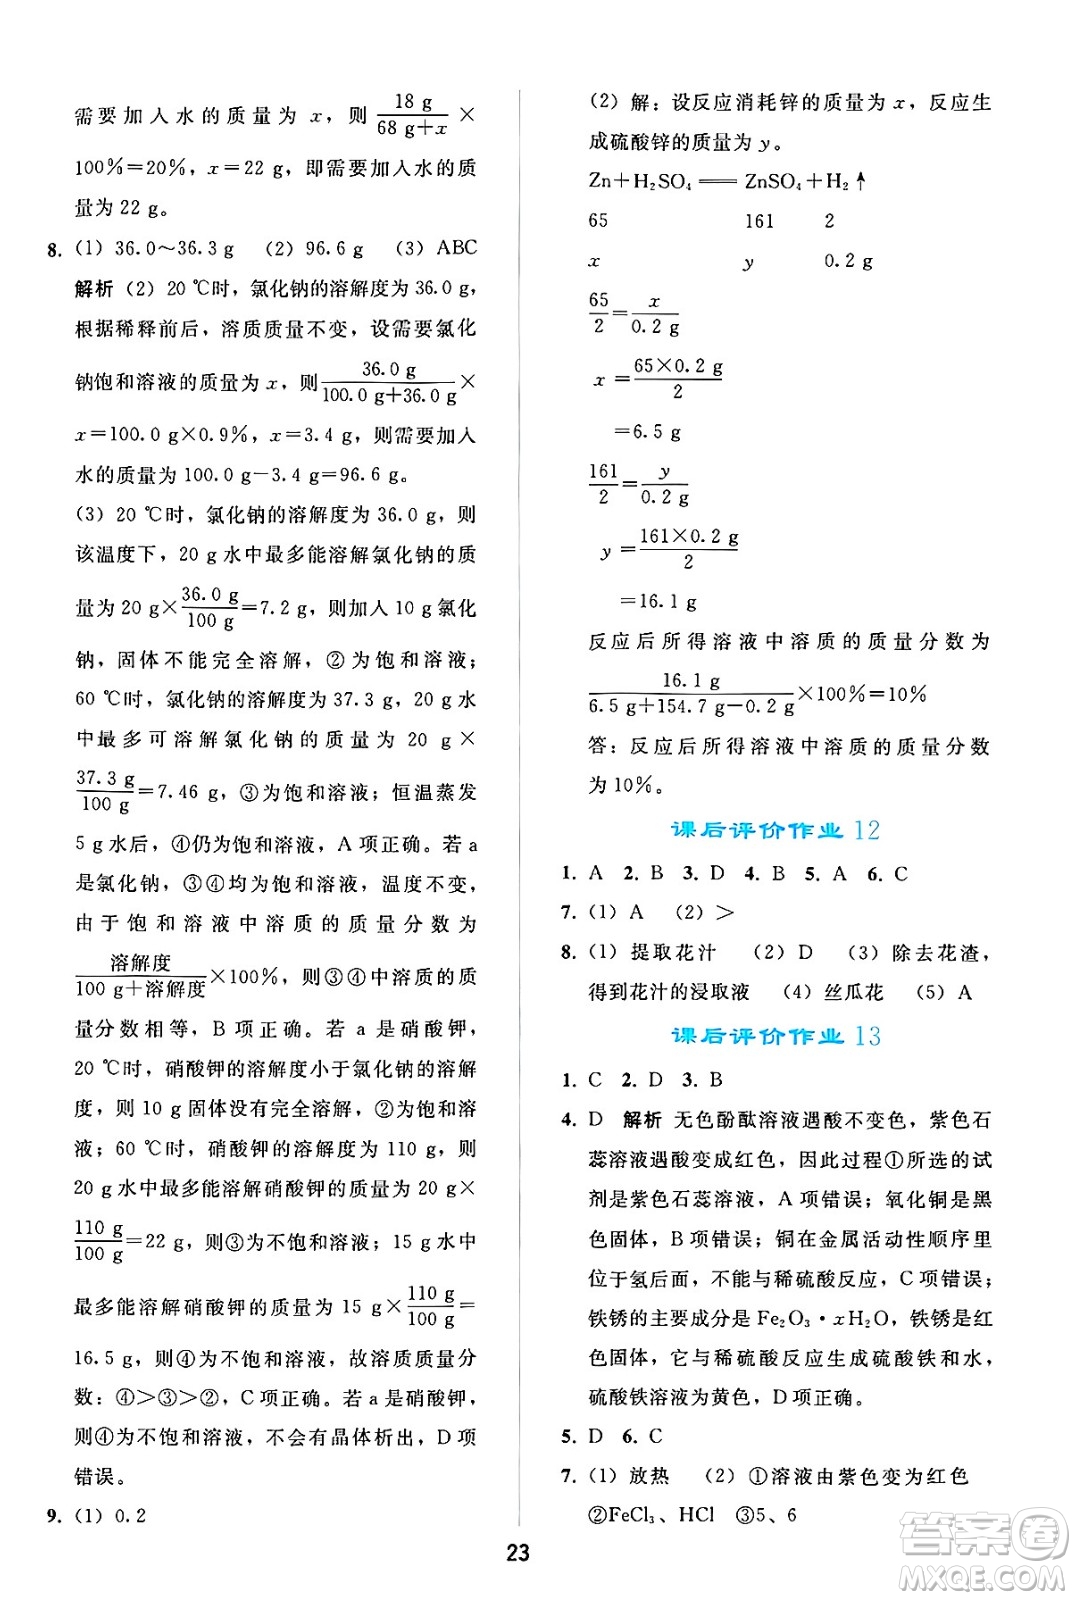 需要加入水的质量为 x，则 18 g/(68 g+x) ×
100%=20%，x=22 g，即需要加入水的质
量为 22 g。
8. (1) 36.0～36.3 g  (2) 96.6 g  (3) ABC
解析 (2) 20 ℃时，氯化钠的溶解度为 36.0 g，
根据稀释前后，溶质质量不变，设需要氯化
钠饱和溶液的质量为 x，则 36.0 g/(100.0 g+36.0 g) ×
x=100.0 g×0.9%，x=3.4 g，则需要加入
水的质量为 100.0 g－3.4 g=96.6 g。
(3) 20 ℃时，氯化钠的溶解度为 36.0 g，则
该温度下，20 g 水中最多能溶解氯化钠的质
量为 20 g× 36.0 g/100 g =7.2 g，则加入 10 g 氯化
钠，固体不能完全溶解，②为饱和溶液；
60 ℃时，氯化钠的溶解度为 37.3 g，20 g 水
中最多可溶解氯化钠的质量为 20 g ×
37.3 g/100 g =7.46 g，③为饱和溶液；恒温蒸发
5 g 水后，④仍为饱和溶液，A 项正确。若 a
是氯化钠，③④均为饱和溶液，温度不变，
由于饱和溶液中溶质的质量分数为
溶解度/(100 g+溶解度) ×100%，则③④中溶质的质
量分数相等，B 项正确。若 a 是硝酸钾，
20 ℃时，硝酸钾的溶解度小于氯化钠的溶解
度，则 10 g 固体没有完全溶解，②为饱和溶
液；60 ℃时，硝酸钾的溶解度为 110 g，则
20 g 水中最多能溶解硝酸钾的质量为 20 g×
110 g/100 g =22 g，则③为不饱和溶液；15 g 水中
最多能溶解硝酸钾的质量为 15 g× 110 g/100 g =
16.5 g，则④为不饱和溶液，故溶质质量分
数：④＞③＞②，C 项正确。若 a 是硝酸钾，
则④为不饱和溶液，不会有晶体析出，D 项
错误。
9. (1) 0.2
(2) 解：设反应消耗锌的质量为 x，反应生
成硫酸锌的质量为 y。
Zn+H₂SO₄══ZnSO₄+H₂↑
65  161  2
x  y  0.2 g
65/2 = x/0.2 g
x = 65×0.2 g/2
=6.5 g
161/2 = y/0.2 g
y = 161×0.2 g/2
=16.1 g
反应后所得溶液中溶质的质量分数为
16.1 g/(6.5 g+154.7 g－0.2 g) ×100%=10%
答：反应后所得溶液中溶质的质量分数
为 10%。
课后评价作业 12
1. A 2. B 3. D 4. B 5. A 6. C
7. (1) A  (2) ＞
8. (1) 提取花汁  (2) D  (3) 除去花渣，
得到花汁的浸取液  (4) 丝瓜花  (5) A
课后评价作业 13
1. C 2. D 3. B
4. D 解析 无色酚酞溶液遇酸不变色，紫色石
蕊溶液遇酸变成红色，因此过程①所选的试
剂是紫色石蕊溶液，A 项错误；氧化铜是黑
色固体，B 项错误；铜在金属活动性顺序里
位于氢后面，不能与稀硫酸反应，C 项错误；
铁锈的主要成分是 Fe₂O₃·xH₂O，铁锈是红
色固体，它与稀硫酸反应生成硫酸铁和水，
硫酸铁溶液为黄色，D 项正确。
5. D 6. C
7. (1) 放热  (2) ①溶液由紫色变为红色
②FeCl₃、HCl  ③5、6
23
答案圈
MXQE.COM